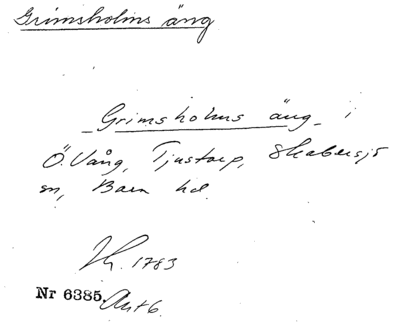 Grimsholms äng
Grimsholms äng i
Ö. Vång, Tjustorp, Skabersjö
sn, Bara hd.
1783
Nr 6385. Akt 6.